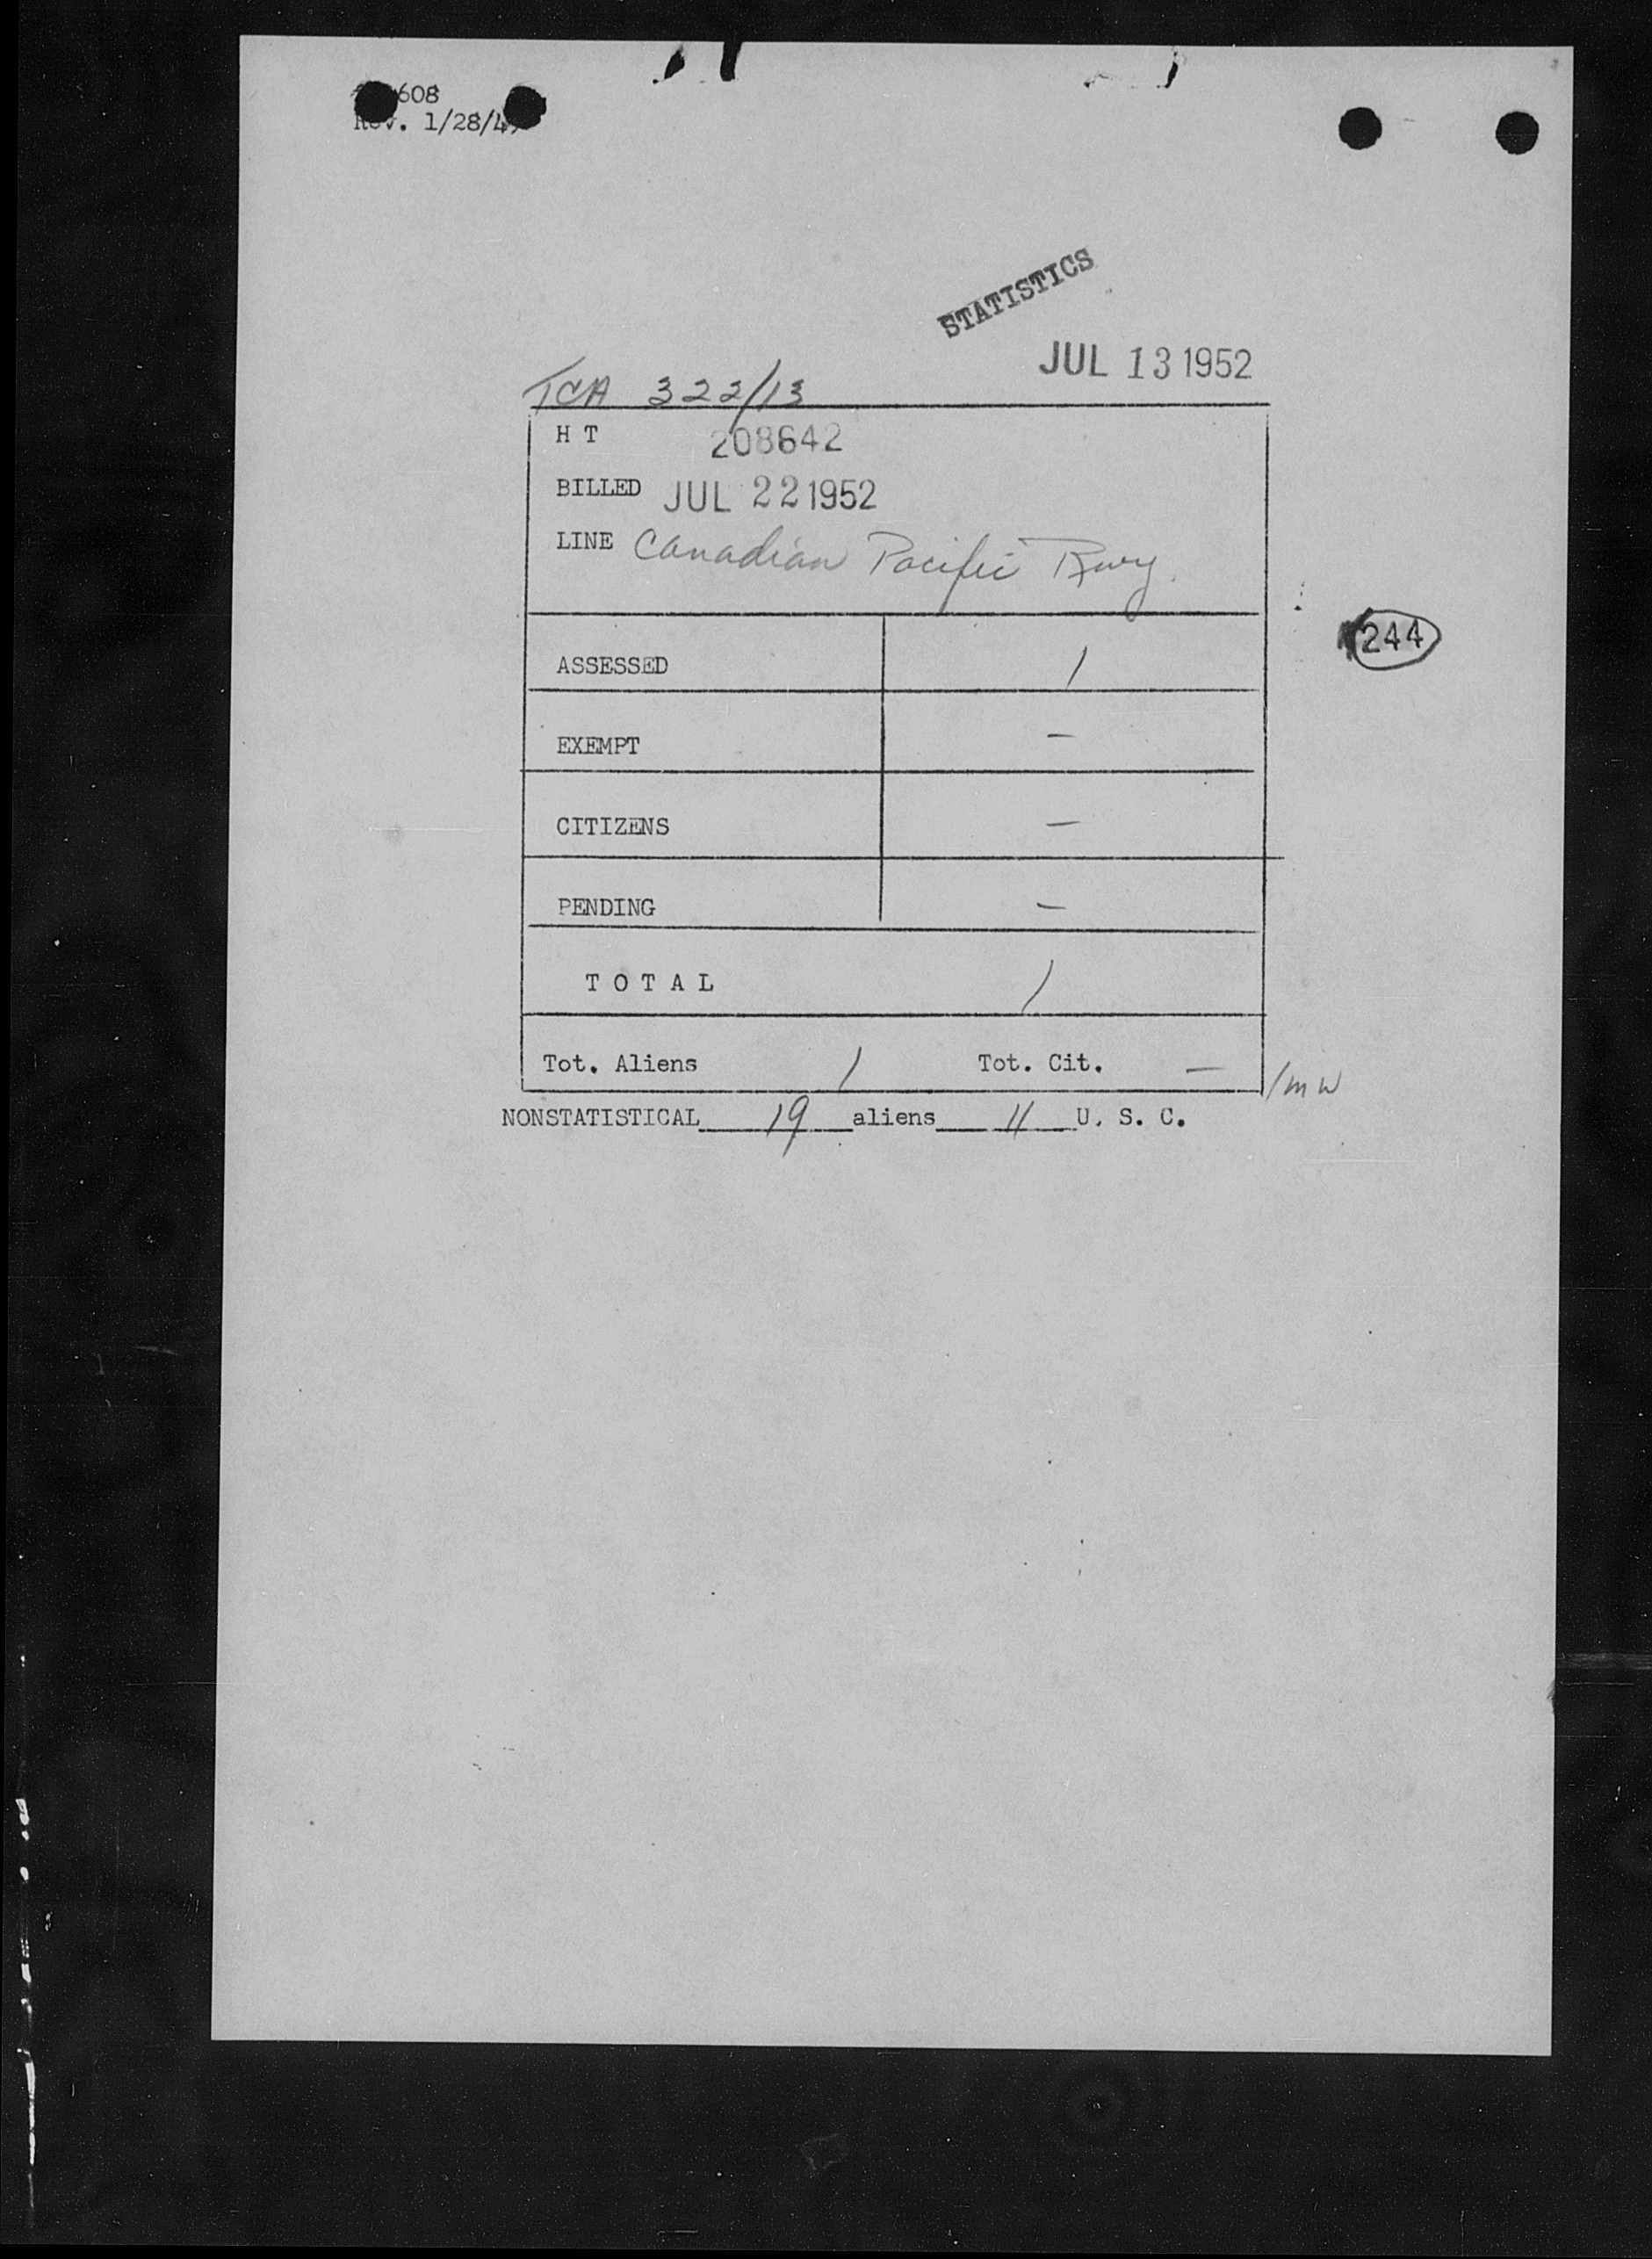 608
Rev. 1/28/4
STATISTICS
JUL 13 1952
TCA 322/13
H T 208642
BILLED JUL 22 1952
LINE Canadian Pacific Rwy.
244
ASSESSED 1
EXEMPT —
CITIZENS —
PENDING —
T O T A L 1
Tot. Aliens 1 Tot. Cit. — /mw
NONSTATISTICAL 19 aliens 11 U. S. C.